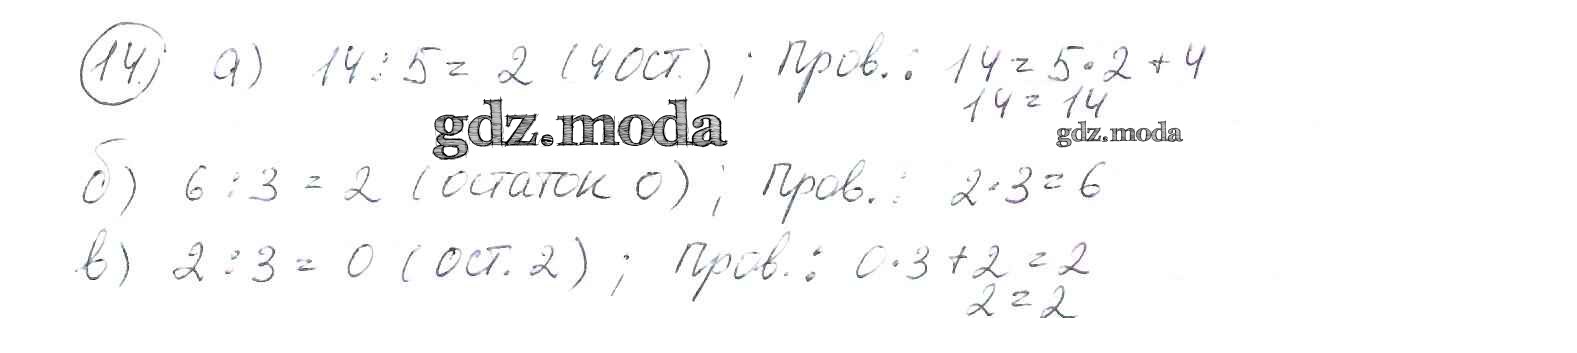 14. а) 14 : 5 = 2 (4 ост.) ; Пров. : 14 = 5 · 2 + 4
14 = 14
gdz.moda
gdz.moda
б) 6 : 3 = 2 (остаток 0) ; Пров. : 2 · 3 = 6
в) 2 : 3 = 0 (ост. 2) ; Пров. : 0 · 3 + 2 = 2
2 = 2